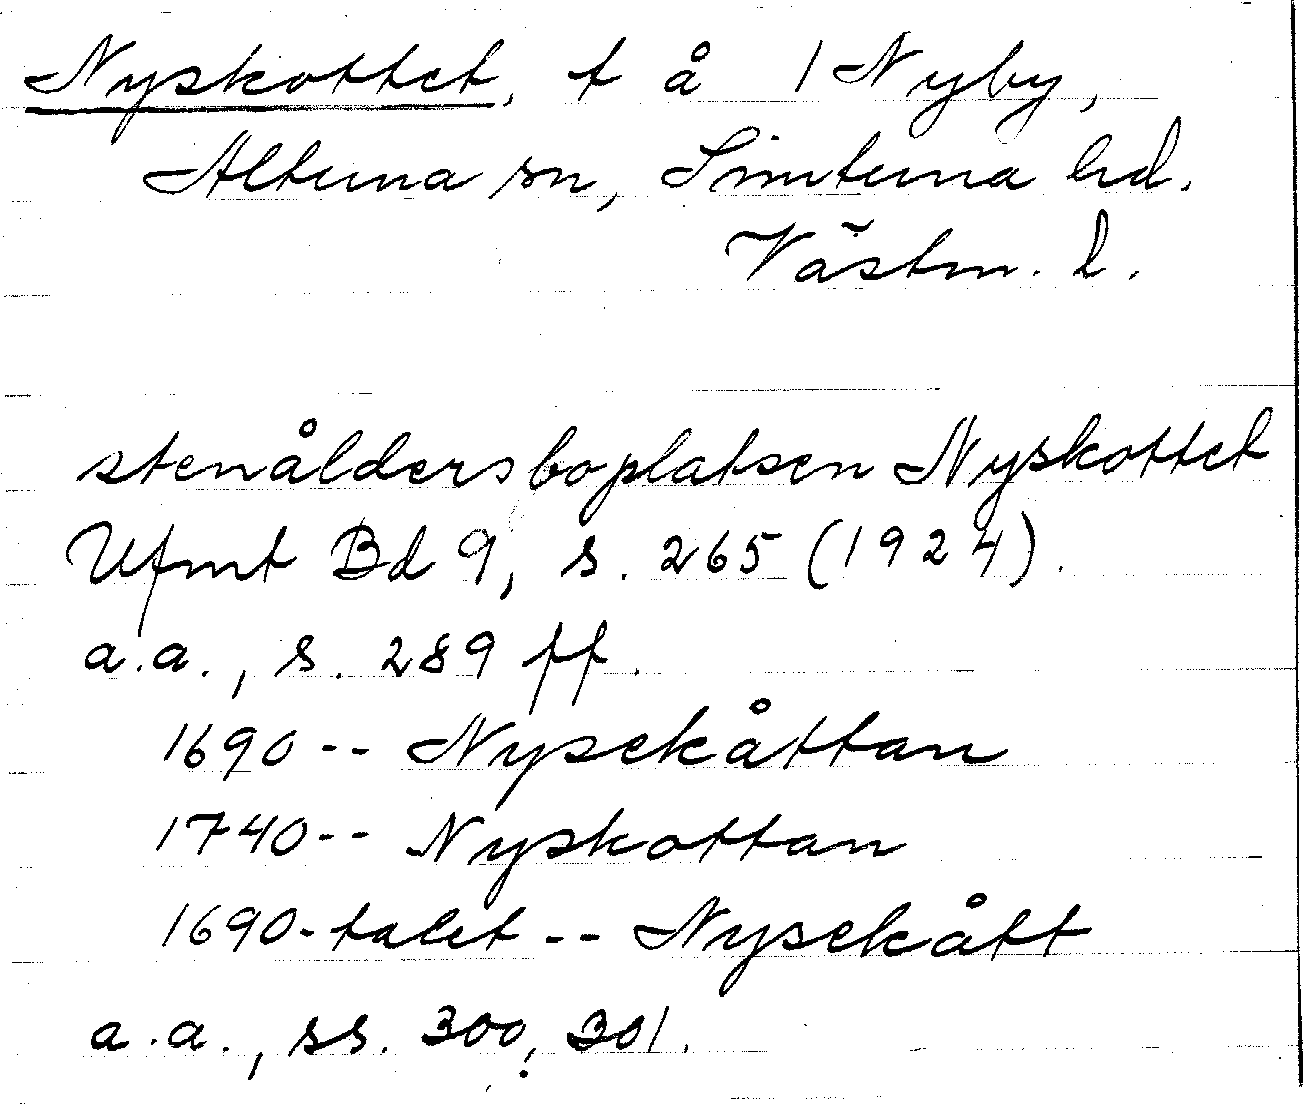 Nyskottet, t å 1 Nyby,
Altuna sn, Simtuna hd.
Västm. l.
stenåldersboplatsen Nyskottet
Ufmt Bd 9, s. 265 (1924).
a.a., s. 289 ff.
1690 -- Nysekåttan
1740 -- Nyskottan
1690-talet -- Nysekått
a.a., ss. 300, 301.